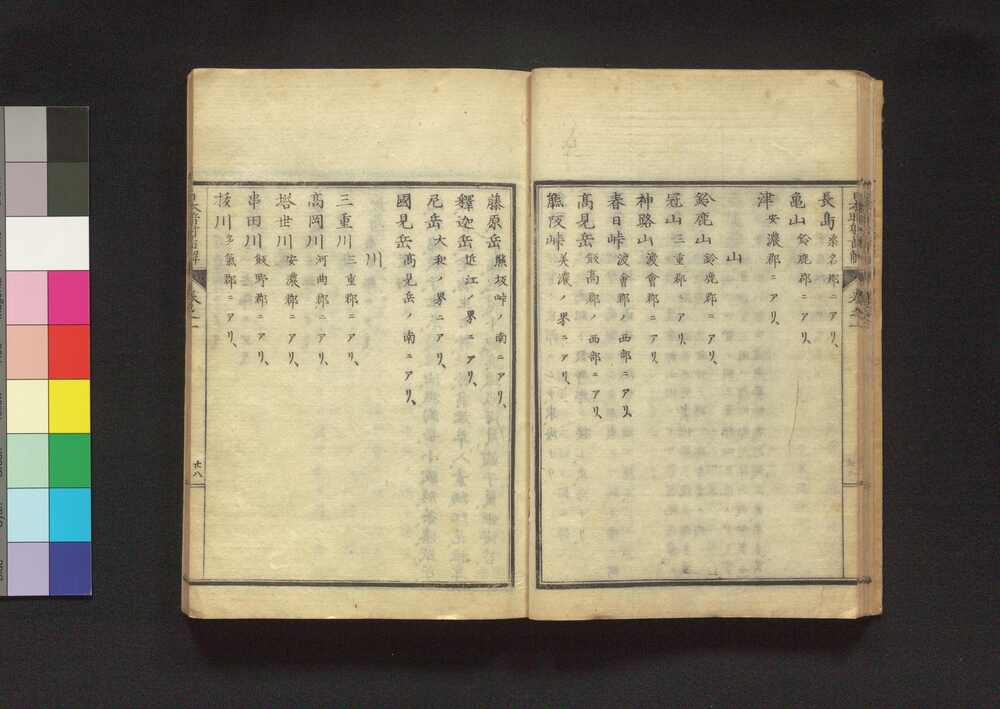 長島 桑名郡ニアリ、
亀山 鈴鹿郡ニアリ、
津 安濃郡ニアリ、
山
鈴鹿山 鈴鹿郡ニアリ、
冠山 三重郡ニアリ、
神路山 渡會郡ニアリ、
春日峠 渡會郡ノ西部ニアリ、
高見岳 飯高郡ノ西部ニアリ、
熊坂峠 美濃ノ界ニアリ、
藤原岳 熊坂峠ノ南ニアリ、
釋迦岳 近江ノ界ニアリ、
尼岳 大和ノ界ニアリ、
國見岳 高見岳ノ南ニアリ、
川
三重川 三重郡ニアリ、
高岡川 河曲郡ニアリ、
塔世川 安濃郡ニアリ、
串田川 飯野郡ニアリ、
川 多氣郡ニアリ、
廿八